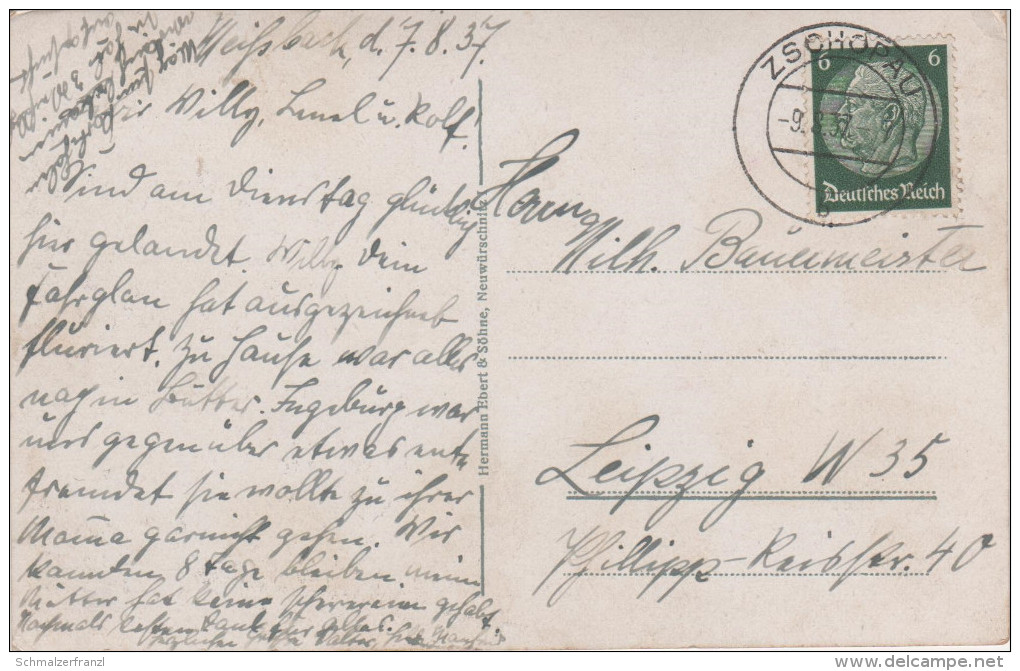 Weißbach, d. 7.8.37.
Willy, Liesel u. Rolf!
Sind am Dienstag glücklig
hir gelandet. Willy dein
Fahrplan hat ausgezeichnet
fluriert. Zu Hause war alles
noch in Butter. Ingeburg war
uns gegenüber etwas ent=
fremdet sie wollte zu ihrer
Mama garnicht gehen. Wir
konnten 8 Tage bleiben meine
Mutter hat keine gehabt.
Nochmals Dank für alles.
Herzlichen Walter,
Hermann Ebert & Söhne, Neuwürschnitz
ZSCHOPAU
-9.8.37.
b
6 6
Deutsches Reich
Wilh. Bauermeister
Leipzig W 35
Phillipp-Reisstr. 40
Schmalzerfranzl
delcampe.net